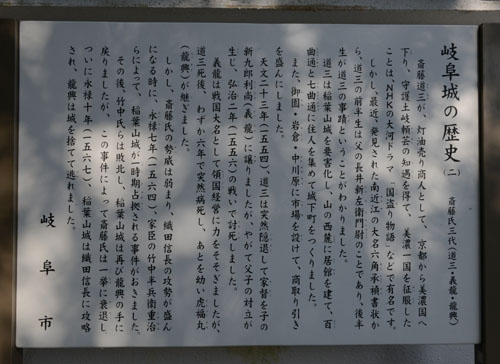 岐阜城の歴史(二)
斎藤氏三代(道三・義龍・龍興)
斎藤道三が、灯油売り商人として、京都から美濃国へ
下り、守護土岐頼芸の知遇を得て、美濃一国を征服した
ことは、NHKの大河ドラマ「国盗り物語」などで有名です。
しかし、最近、発見された南近江の大名六角承禎書状か
ら、道三の前半生は父の長井新左衛門尉のことであり、後半
生が道三の事蹟ということがわかりました。
道三は稲葉山城を要害化し、山の西麓に居館を建て、百
曲通と七曲通に住人を集めて城下町をつくりました。
また、御園・岩倉・中川原に市場を設けて、商取り引き
を盛んにしました。
天文二十三年(一五五四)、道三は突然隠退して家督を子の
新九郎利尚(義龍)に譲りましたが、やがて父子の対立が
生じ、弘治二年(一五五六)の戦いで討死しました。
義龍は戦国大名として領国経営に力をそそぎましたが、
道三死後、わずか六年で突然病死し、あとを幼い虎福丸
(龍興)が継ぎました。
しかし、斎藤氏の勢威は弱まり、織田信長の攻勢が盛ん
になる時に、永禄七年(一五六四)、家臣の竹中半兵衛重治
らによって、稲葉山城が一時期占拠される事件がおきました。
その後、竹中氏らは敗北し、稲葉山城は再び龍興の手に
戻りましたが、この事件によって斎藤氏は一挙に衰退し、
ついに永禄十年(一五六七)、稲葉山城は織田信長に攻略
され、龍興は城を捨てて逃れました。
岐阜市